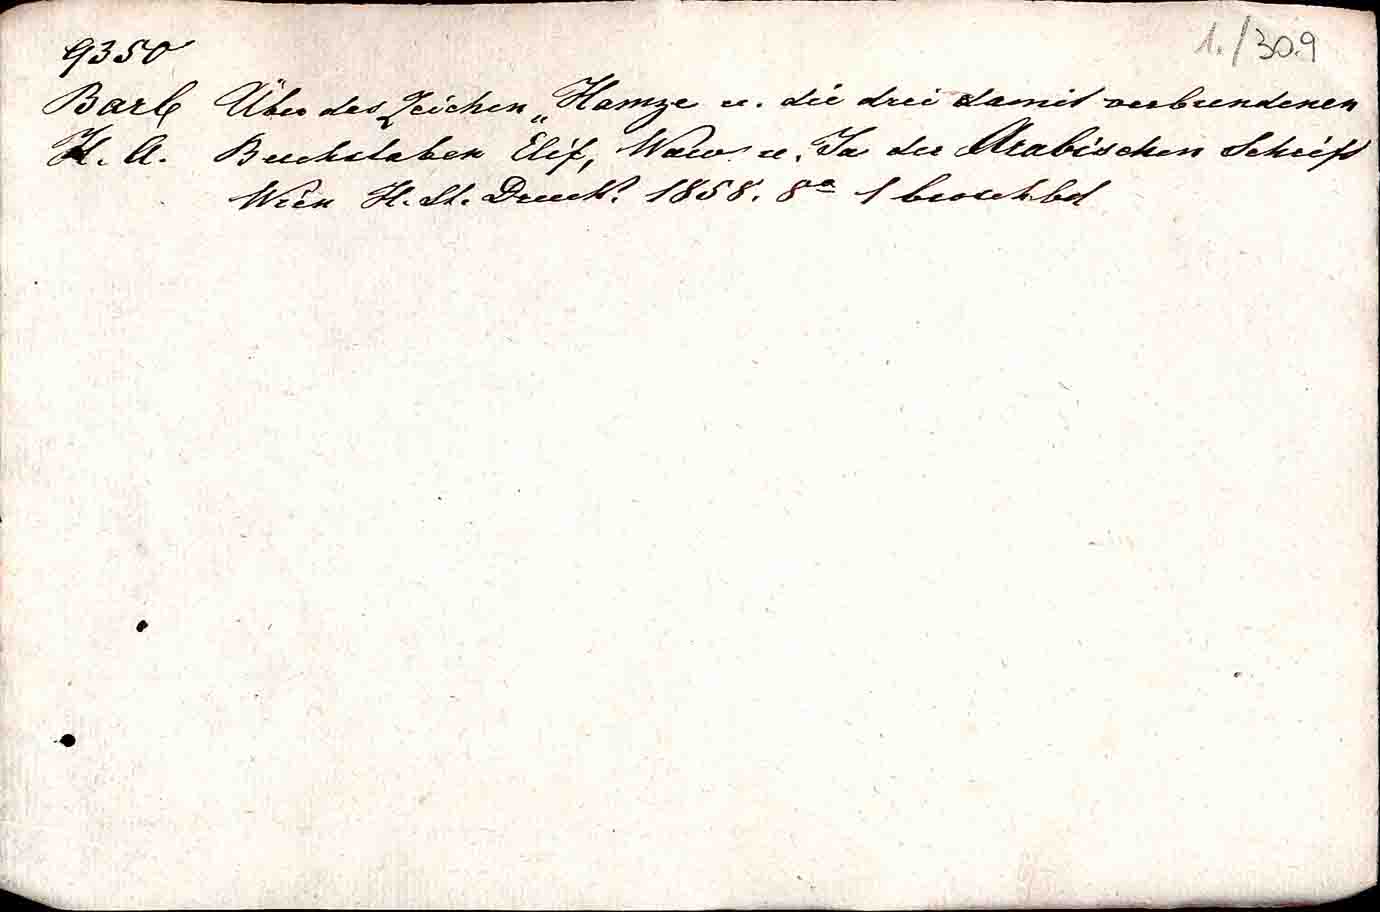 9350
1./309
Barb Über das Zeichen „Hamze u. die drei damit verbundenen
H. A. Buchstaben Elif, Waw u. Ja der Arabischen Schrift
Wien H. St. Druck. 1858. 8° 1 brosch bd